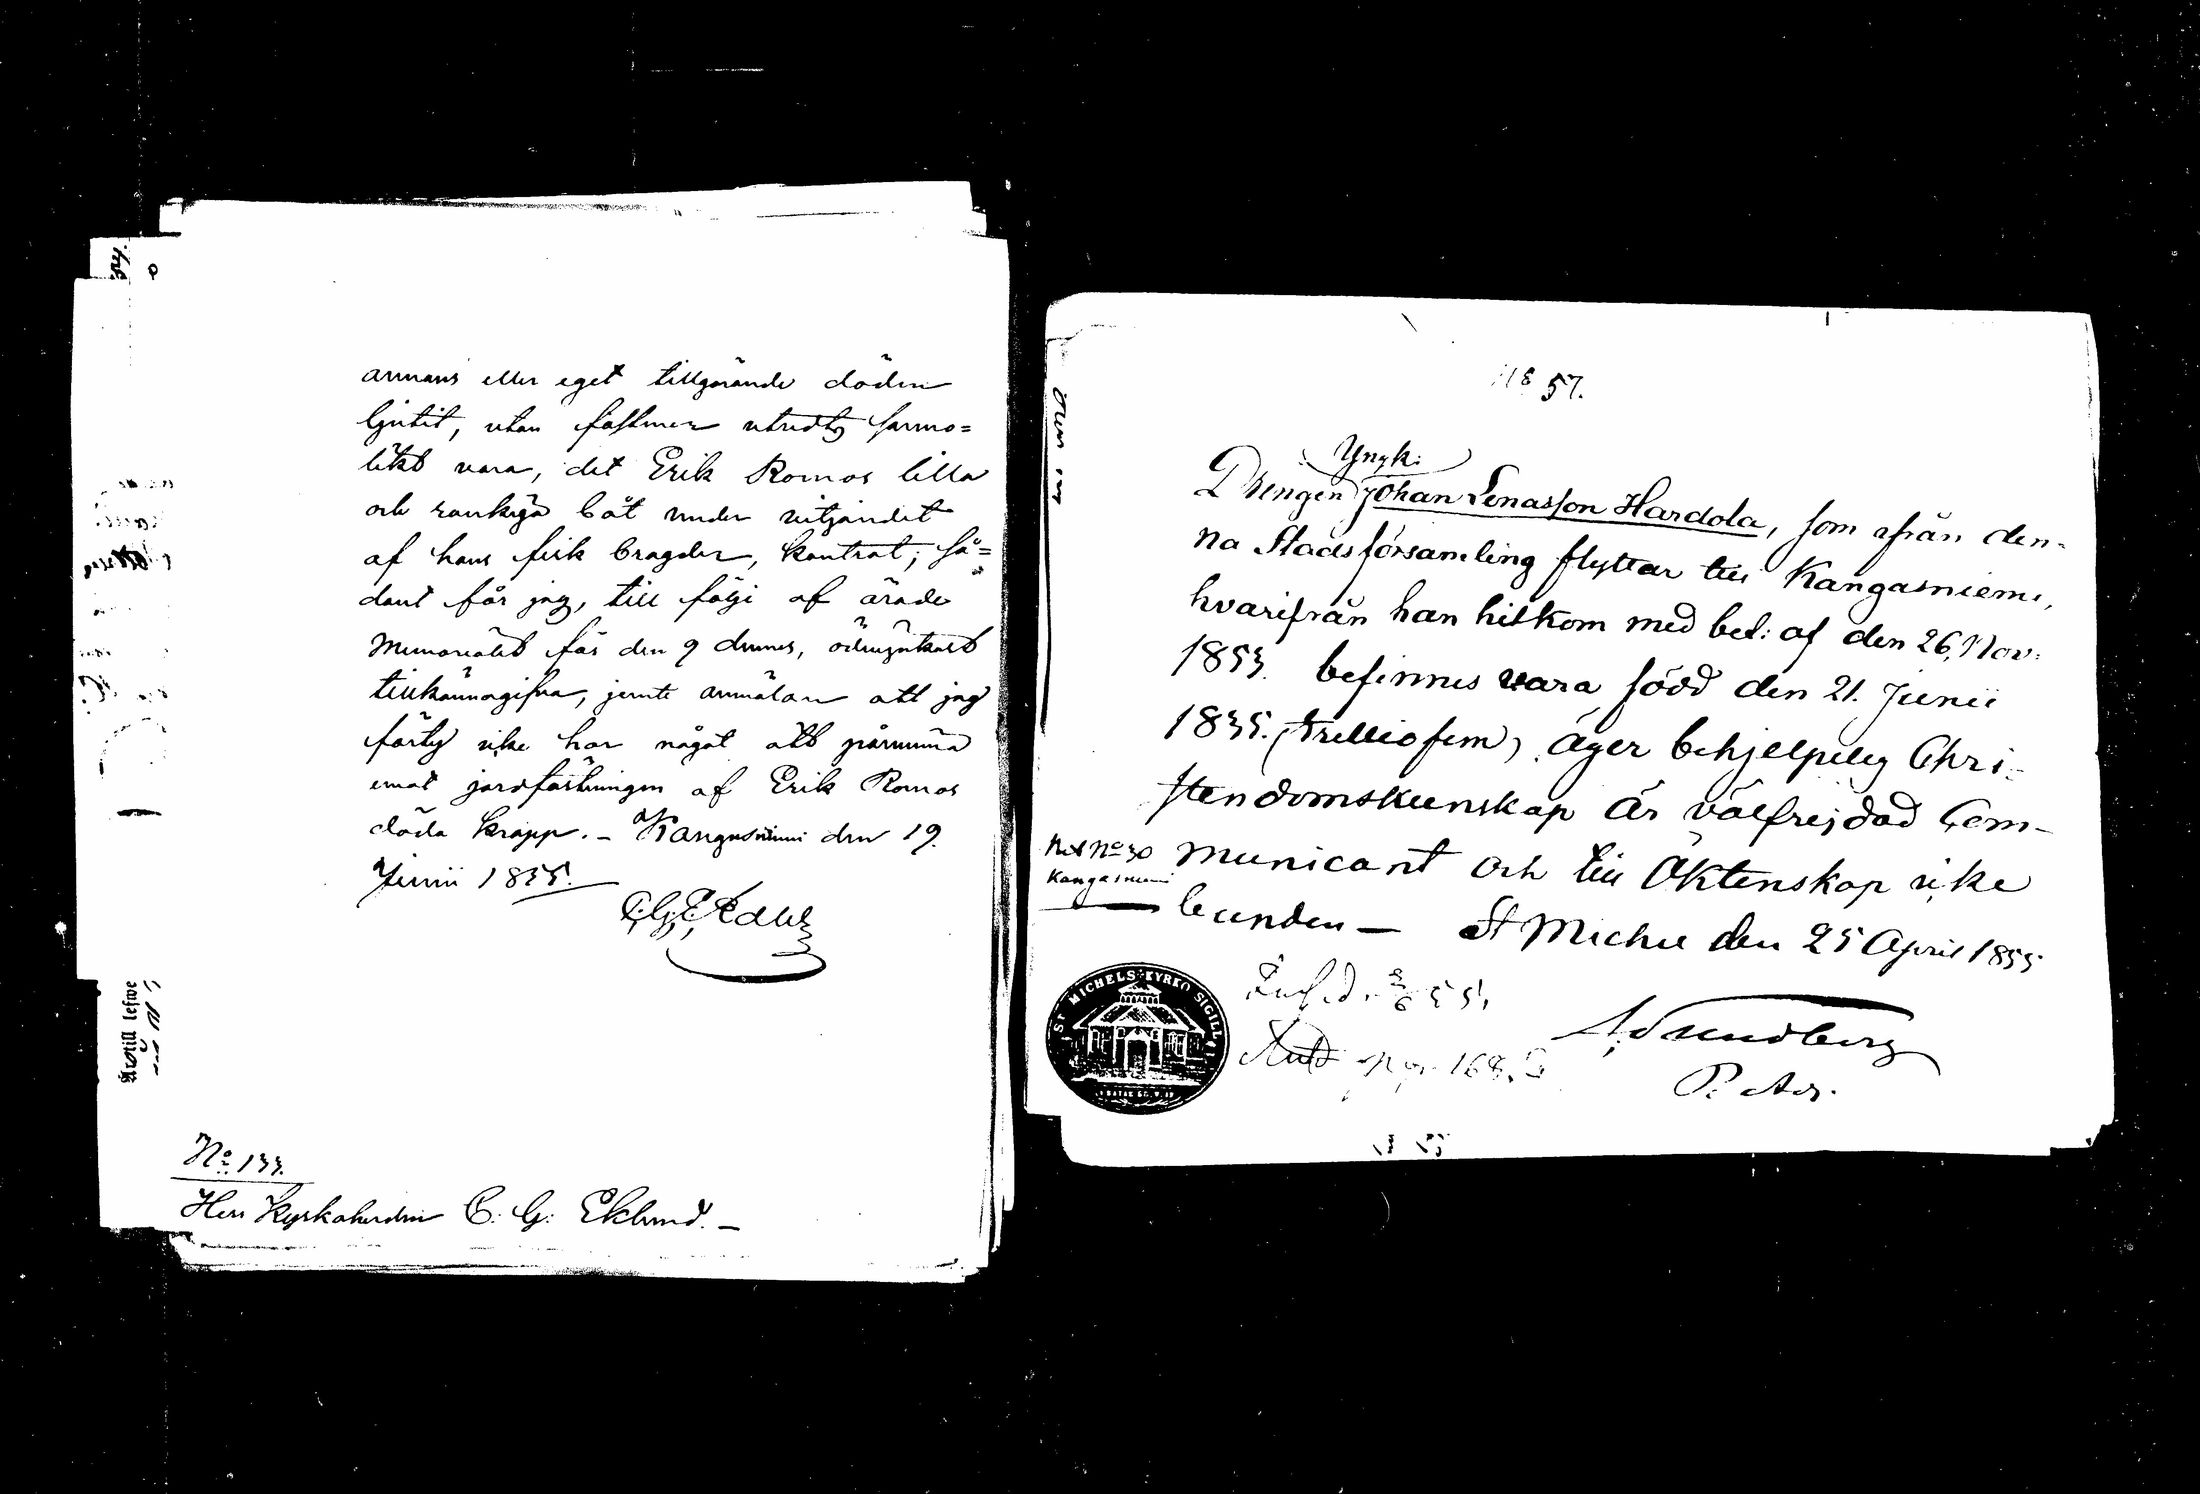 annans eller eget tillgörande döden
ljutit, utan fastmer utredts sanno=
likt vara, det Erik Romos lilla
och rankiga båt under vitjandet
af hans fisk bragder, kantrat; så=
dant får jag, till följe af ärade
Memorialet för den 9 dennes, ödmjukast
tillkännagifva, jemte anmälan att jag
förty icke har något att påminna
emot jordfästningen af Erik Romos
döda kropp. – Kangasniemi den 19.
Junii 1855.
No 133.
Herr Kyrkoherden C. G. Eklund. –
Ärotill lefwe
57.
Yngk:
Drengen Johan Lenasson Hardola, som ifrån den-
na Stadsförsamling flyttar till Kangasniemi,
hvarifrån han hitkom med bet: af den 26. Nov:
1853. befinnes vara född den 21. Junii
1835. (trettiofem) äger behjelpelig Chri-
stendomskunskap är välfrejdad Com-
municant och till Äktenskap icke
bunden – St Michel den 25 April 1855
Bet No 30
Kangasniemi
A. Sundberg
P. Adj.
ST MICHELS KYRKO SIGILL